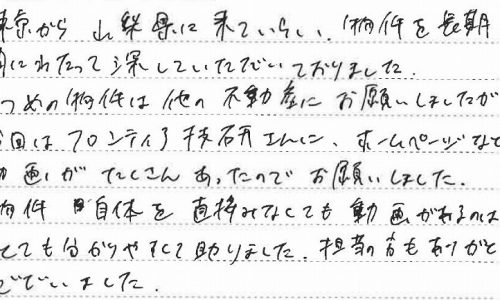 東京から山梨県に来ていらい、物件を長期
間にわたって探していただいておりました。
1つめの物件は他の不動産にお願いしましたが
今回はフロンティア技研さんに、ホームページなど
動画がたくさんあったのでお願いしました。
物件自体を直接みなくても動画があるのは
とても分かりやすくて助りました。担当の方もありがと
うございました。